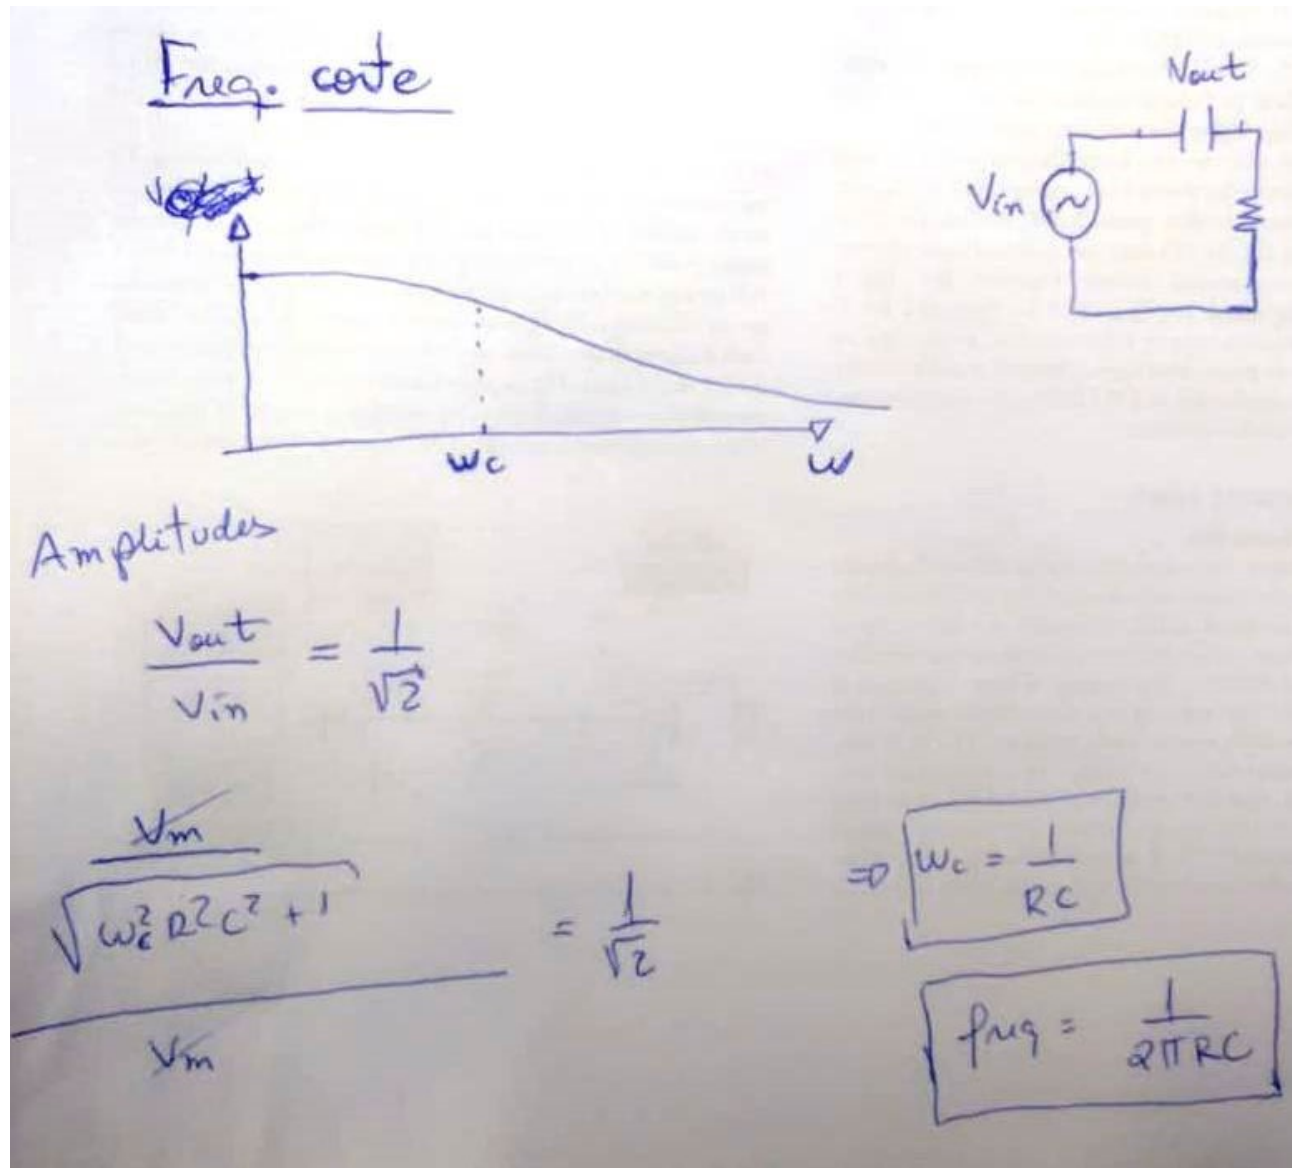 Freq. corte
Vout
Vin
wc
w
Amplitudes
Vout / Vin = 1 / √2
Vm / √(wc² R² C² + 1) / Vm = 1 / √2
⇒ wc = 1 / RC
freq = 1 / 2πRC